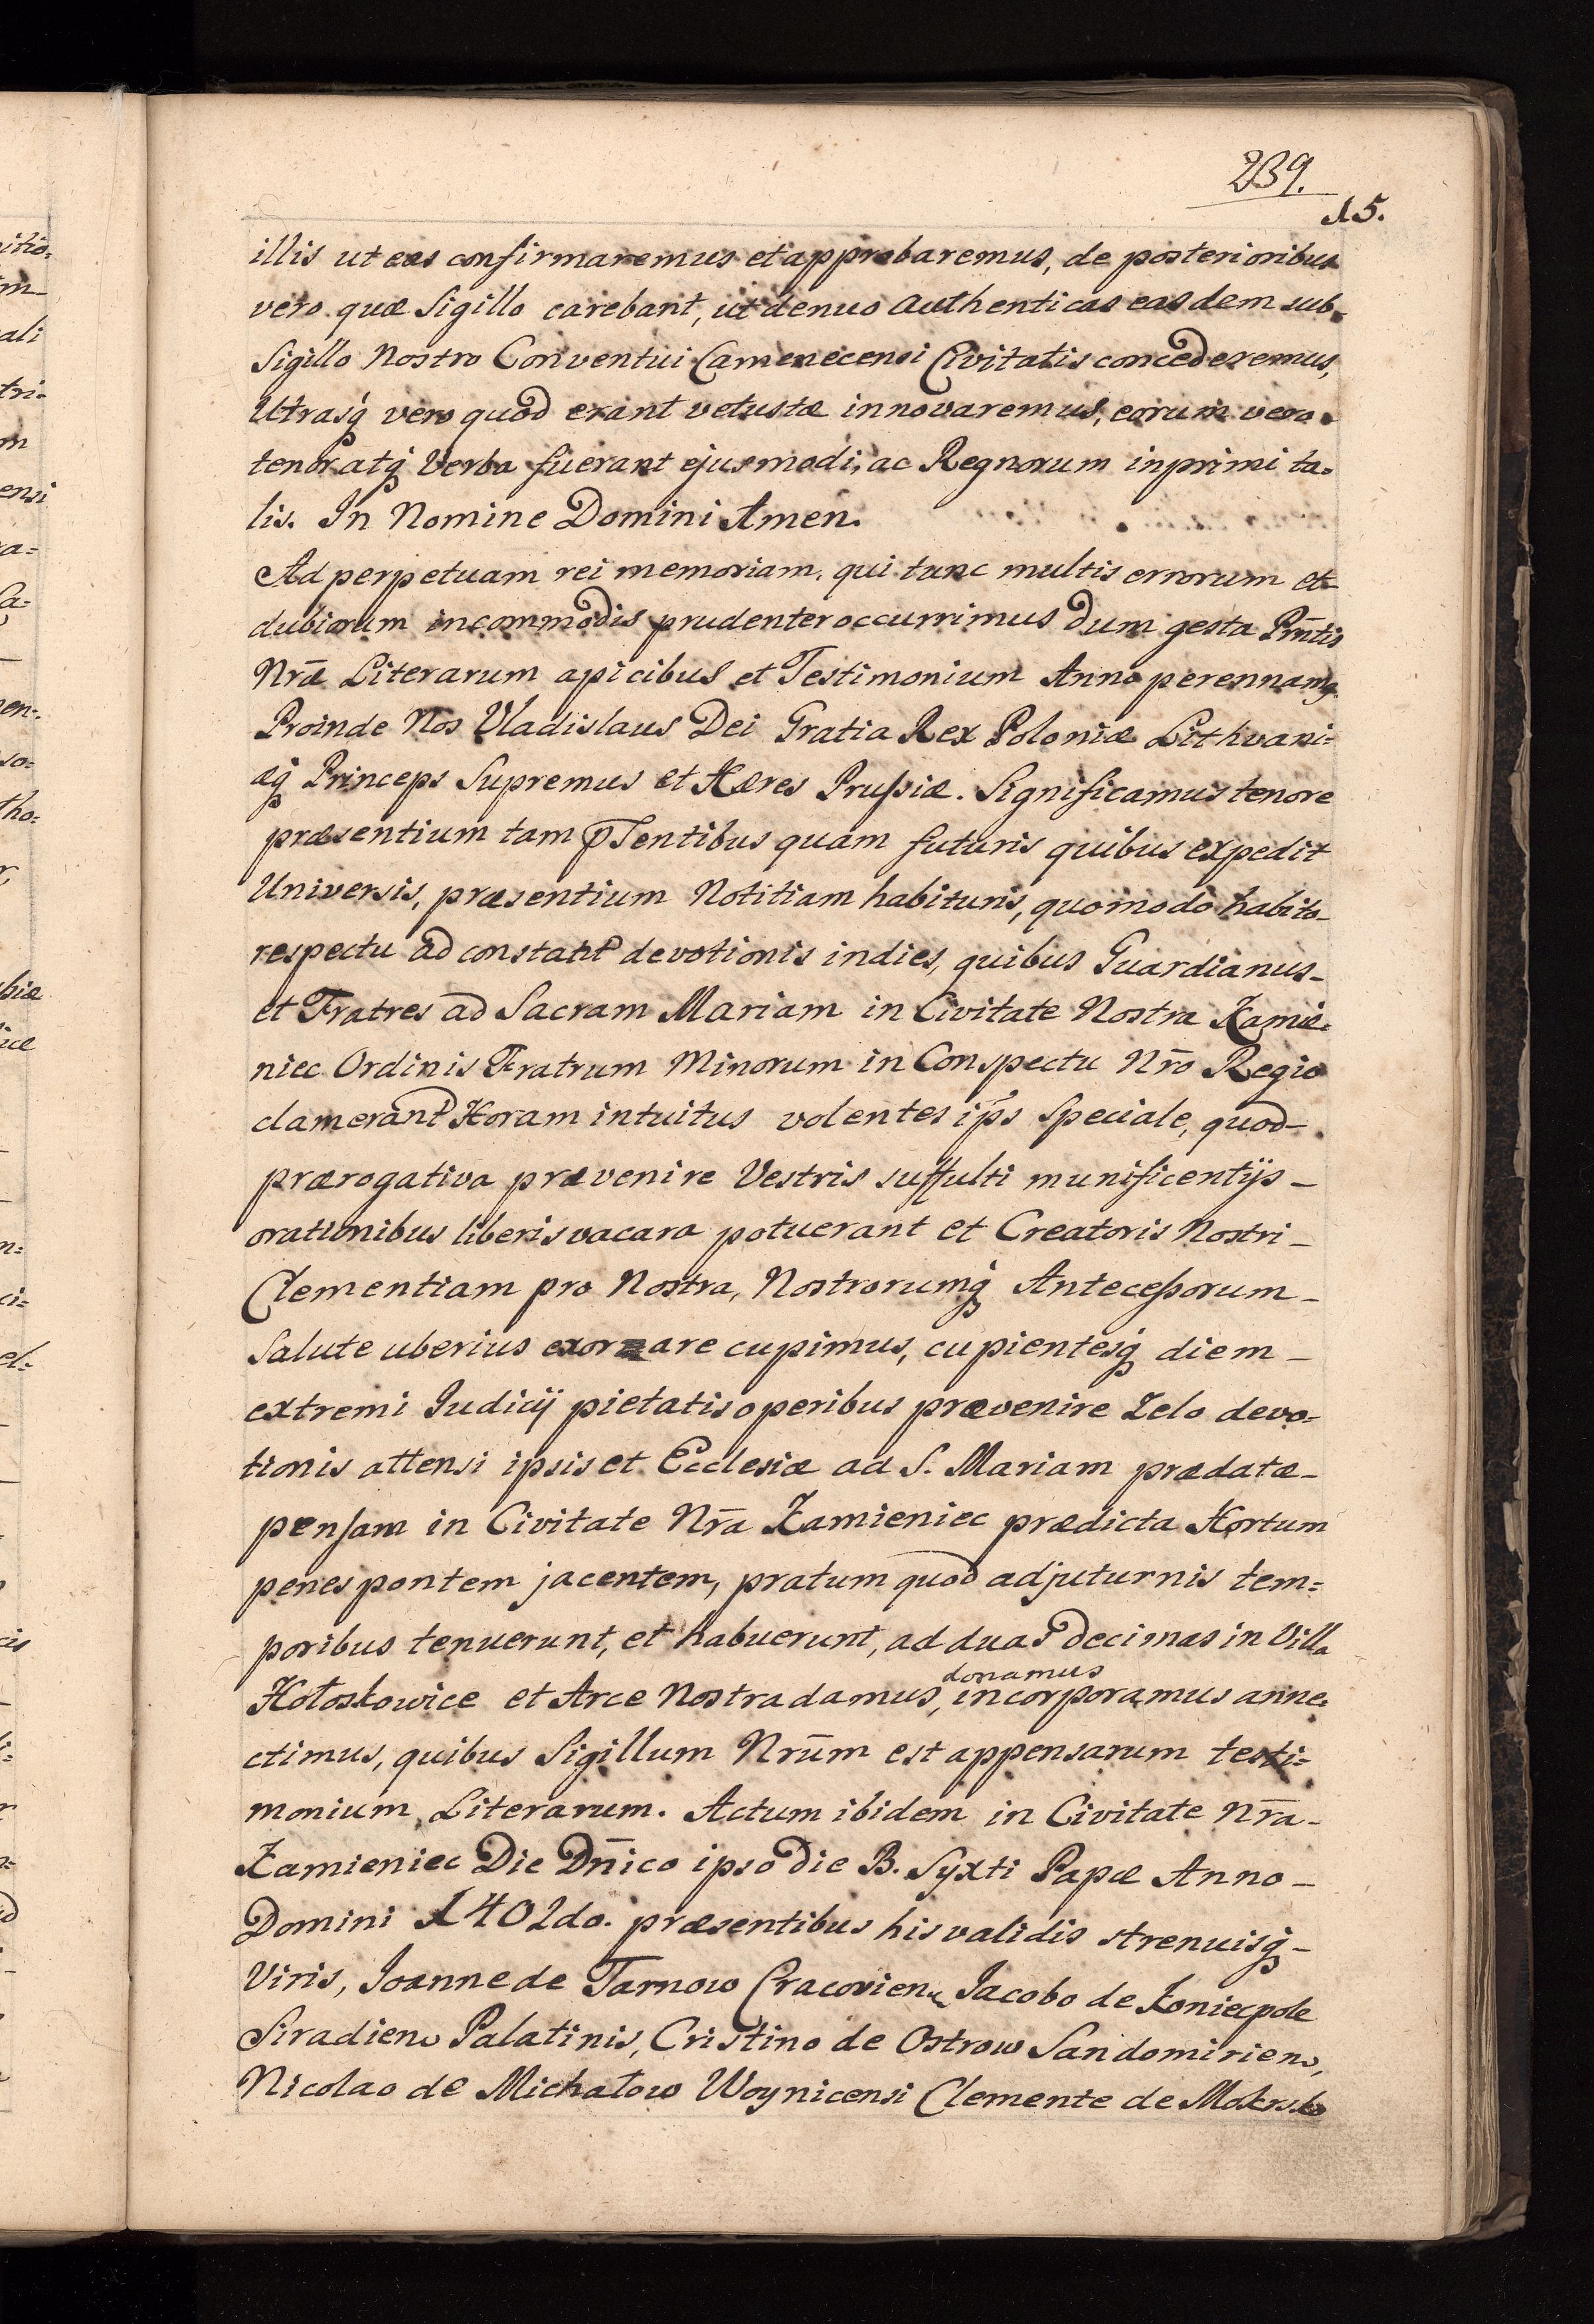 239.
15.
illis ut eas confirmaremus et approbaremus, de posterioribus
vero quæ Sigillo carebant, ut denuo Authenticas easdem sub
Sigillo Nostro Conventui Camenecensi Civitatis concederemus,
Utrasq vero quod erant vetustæ innovaremus, eorum vero
tenor atq Verba fuerant ejusmodi, ac Regnorum inprimi ta=
lis. In Nomine Domini Amen.
Ad perpetuam rei memoriam, qui tunc multis errorum et
dubiorum incommodis prudenter occurrimus dum gesta Pñtis
Nræ Literarum apicibus et Testimonium Anno perennamq
Proinde Nos Vladislaus Dei Gratia Rex Poloniæ Lithvani=
æq Princeps Supremus et Hæres Prussiæ. Significamus tenore
præsentium tam pSentibus quam futuris quibus expedit
Universis, præsentium Notitiam habituris, quomodo habito
respectu ad constant devotionis indies, quibus Guardianus
et Fratres ad Sacram Mariam in Civitate Nostra Kamie=
niec Ordinis Fratrum Minorum in Conspectu Nro Regio
clamerant Horam intuitus volentes ips Speciale, quod
prærogativa prævenire Vestris suffulti munificentijs
orationibus liberis vacara potuerant et Creatoris Nostri
Clementiam pro Nostra, Nostrorumq Antecessorum
Salute uberius exornare cupimus, cupientesq diem
extremi Iudicij pietatis operibus prævenire Zelo devo=
tionis attensi ipsis et Ecclesiæ ad S. Mariam prædatæ
pensam in Civitate Nra Kamieniec prædicta Hortum
penes pontem jacentem, pratum quod adjuturnis tem=
poribus tenuerunt, et habuerunt, ad duas decimas in Villa
donamus
Hołoskowice et Arce Nostra damus, incorporamus anne=
ctimus, quibus Sigillum Nrum est appensarum testi=
monium Literarum. Actum ibidem in Civitate Nra
Kamieniec Die Dnico ipso die B. Syxti Papæ Anno
Domini 1402do. præsentibus his validis strenuisq
Viris, Joanne de Tarnow Cracovien, Jacobo de Koniecpole
Siradien Palatinis, Cristino de Ostrow Sandomirien,
Nicolao de Michałow Woynicensi Clemente de Mokrsko